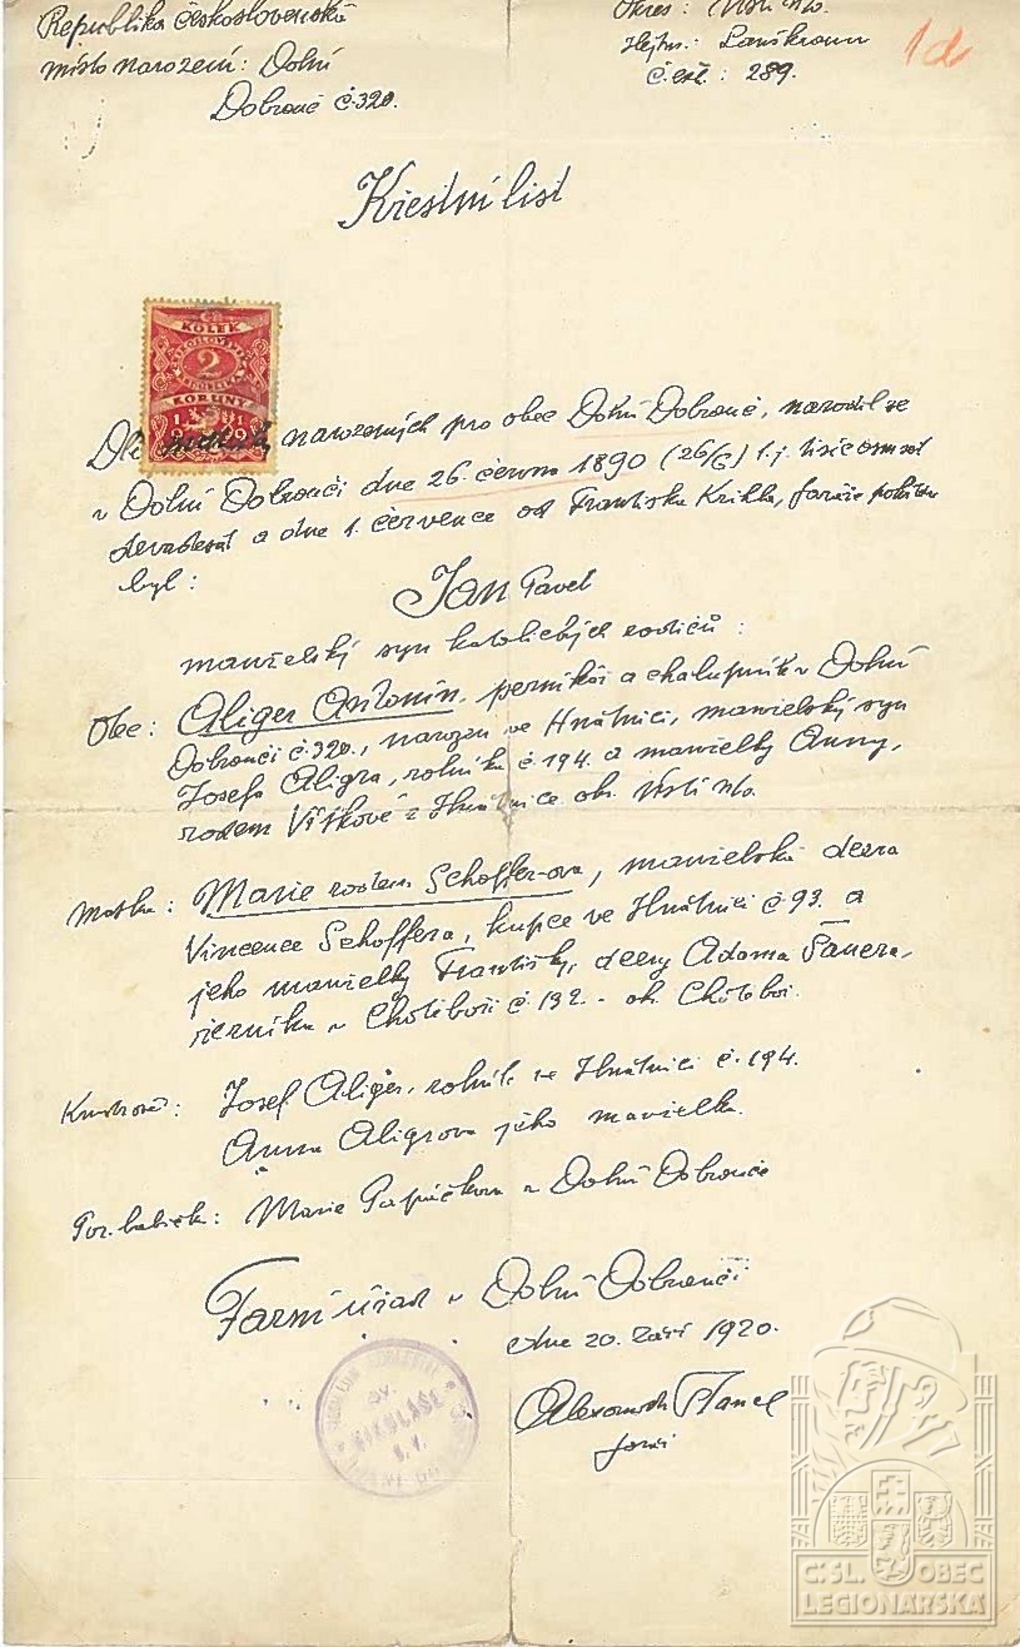 Republika Československá
místo narození: Dolní
Dobrouč č. 320.
Okres: Ústí n/o.
Hejtm.: Lanškroun
č. exh.: 289.
1d
Křestní list
KOLEK
2
KORUNY
1919
Dle matriky narozených pro obec Dolní Dobrouč, narodil se
v Dolní Dobrouči dne 26. června 1890 (26/6) t.j. tisíc osm set
devadesát a dne 1. července od Františka Krikla, faráře pokřtěn
byl:
Jan Pavel
manželský syn katolických rodičů:
Otec: Aliger Antonín, perníkář a chalupník v Dolní
Dobrouči č. 320., narozen ve Hnátnici, manželský syn
Josefa Aligra, rolníka č. 194. a manželky Anny,
rodem Vítkové z Hnátnice ok. Ústí n/o.
Matka: Marie rodem Schoffer-ova, manželská dcera
Vincence Schoffera, kupce ve Hnátnici č 93. a
jeho manželky Františky, dcery Adama Šauera,
řezníka v Chotěboři č. 132. - ok. Chotěboř.
Kmotrové: Josef Aliger, rolník ve Hnátnici č. 194.
Anna Aligrova jeho manželka.
Por. babička: Marie Papáčkova z Dolní Dobrouče
Farní úřad v Dolní Dobrouči
dne 20. září 1920.
Alexandr Hanel
farář
SV.
MIKULÁŠE
Č. SL. OBEC
LEGIONÁŘSKÁ